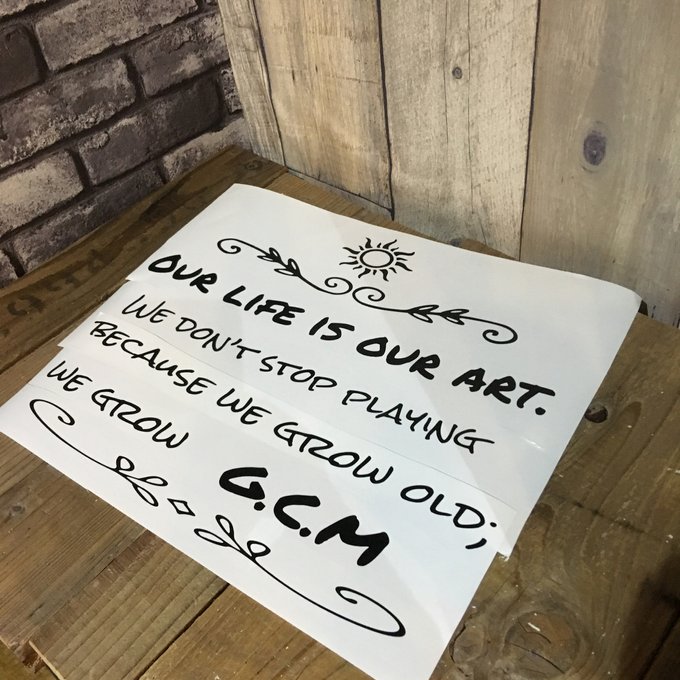 OUR LIFE IS OUR ART.
WE DON'T STOP PLAYING
BECAUSE WE GROW OLD;
WE GROW
G.C.M